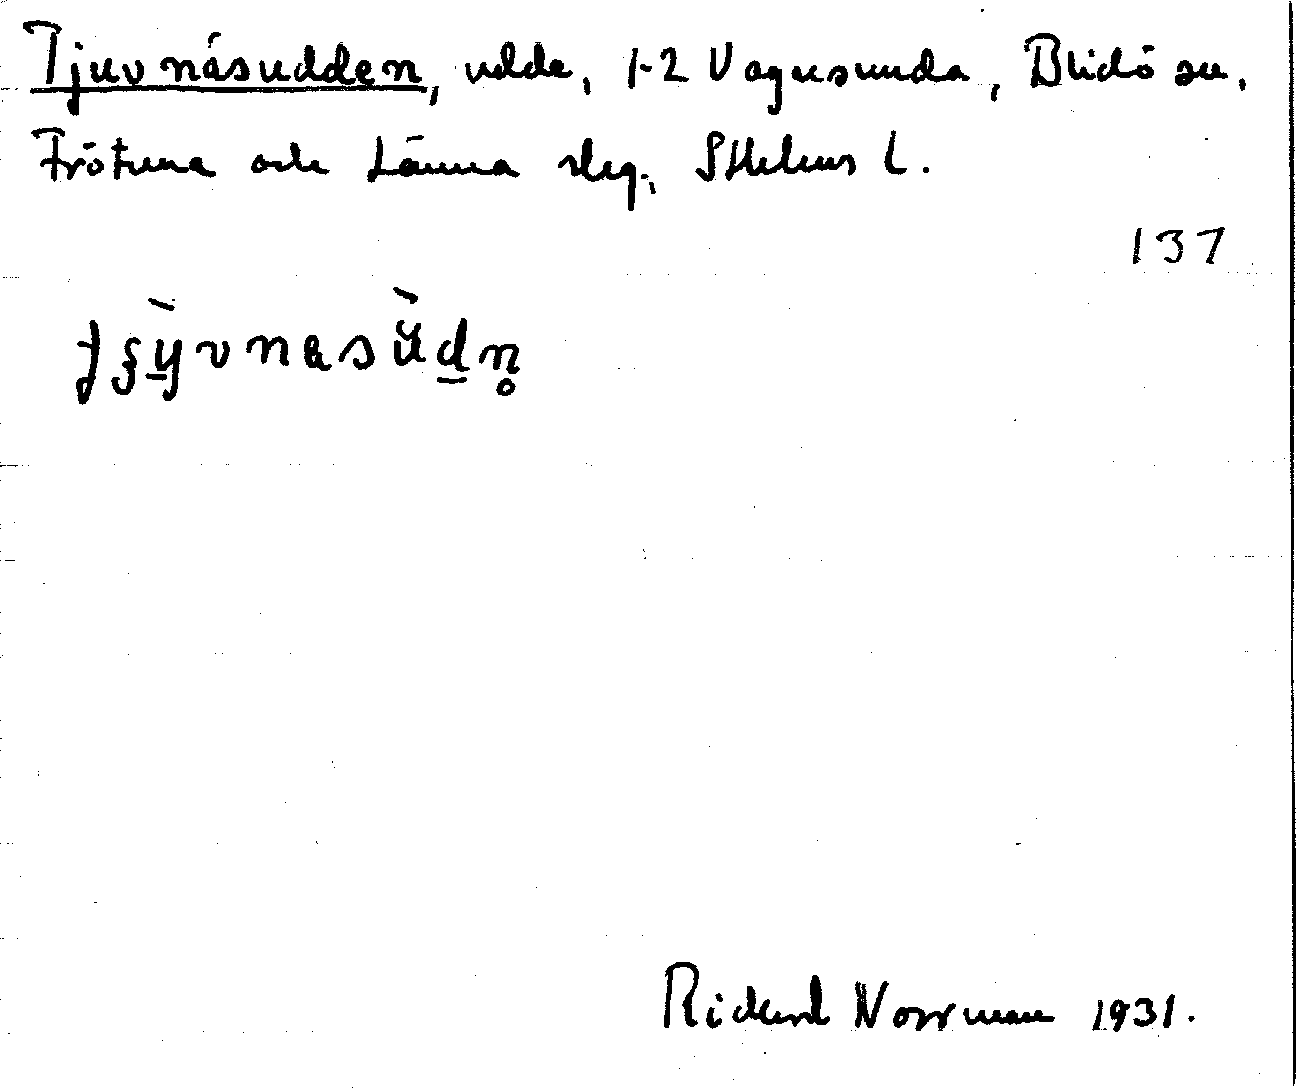 Tjuvnäsudden, udde, 1-2 Vagnsunda, Blidö sn,
Frötuna och Länna slg, Sthlms L.
137
Richard Norrman 1931.